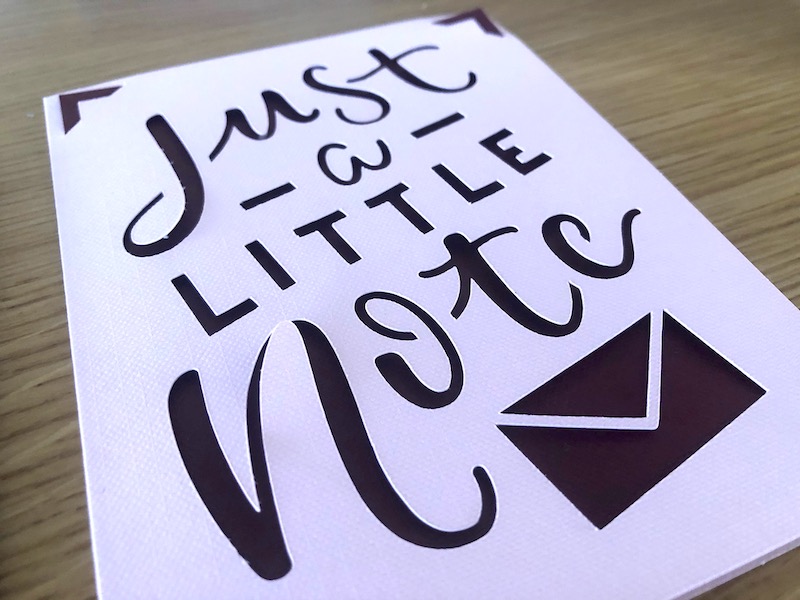 Just
- a -
LITTLE
Note